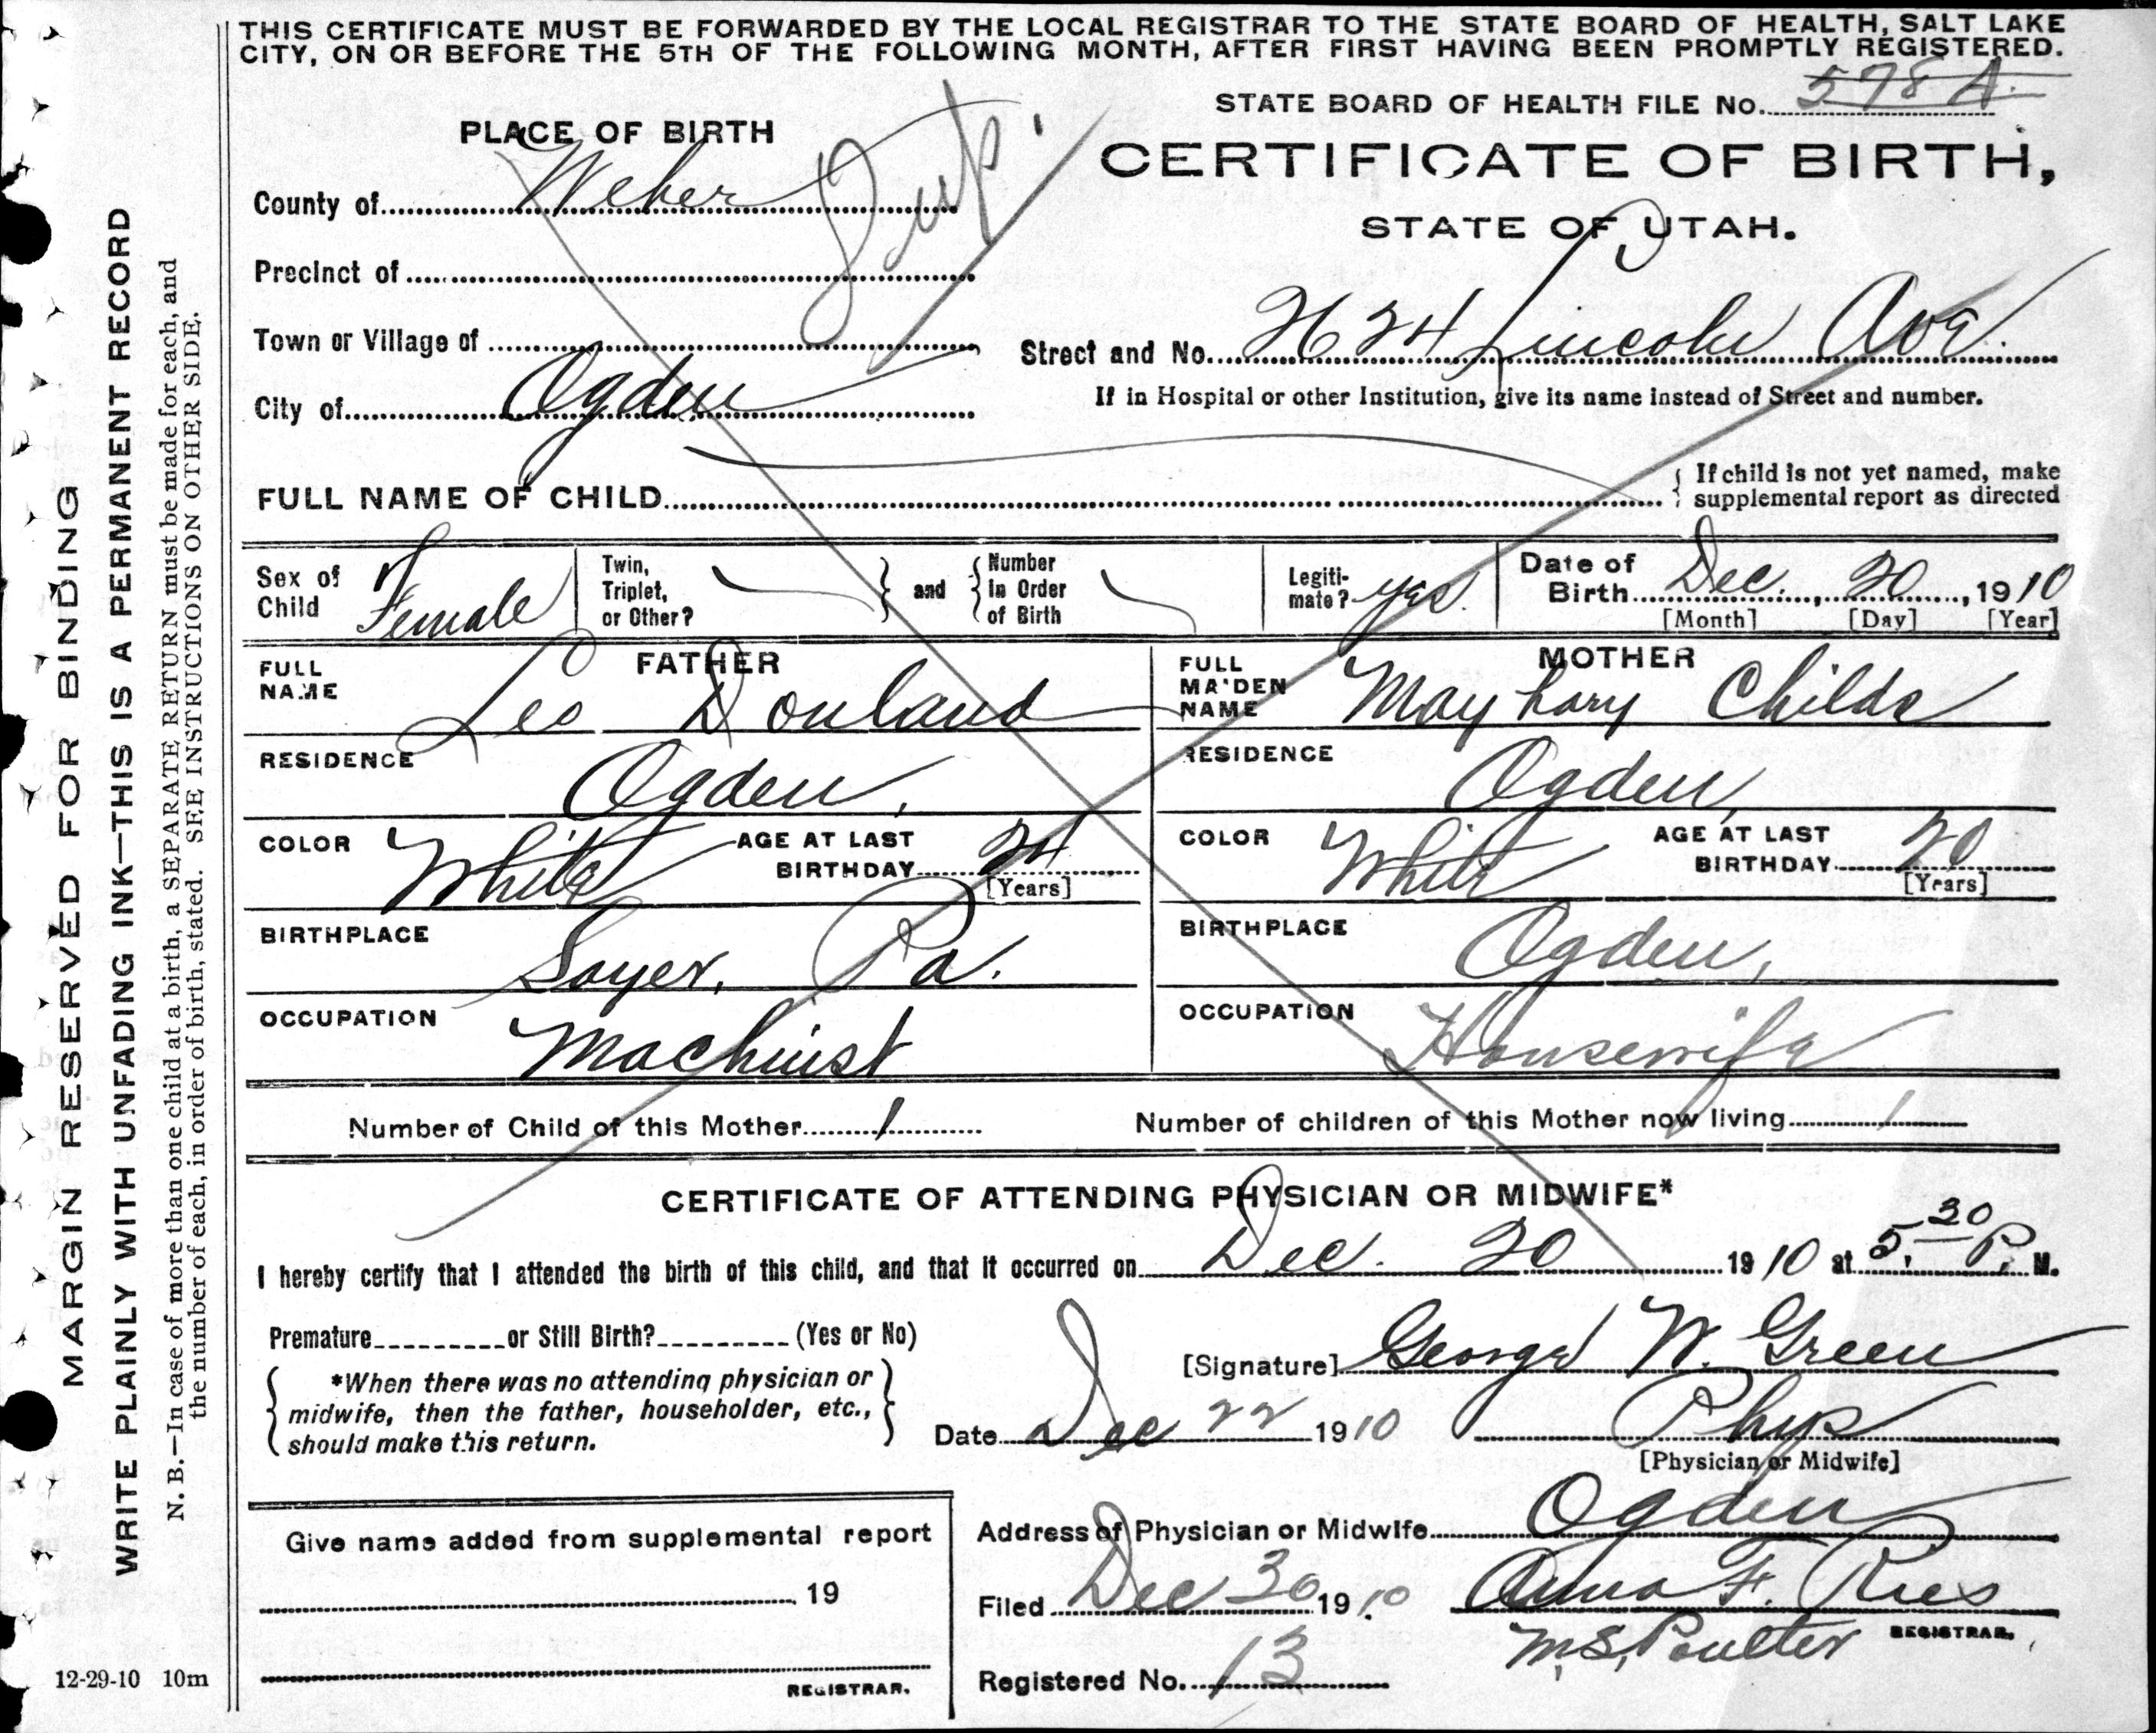 THIS CERTIFICATE MUST BE FORWARDED BY THE LOCAL REGISTRAR TO THE STATE BOARD OF HEALTH, SALT LAKE
CITY, ON OR BEFORE THE 5TH OF THE FOLLOWING MONTH, AFTER FIRST HAVING BEEN PROMPTLY REGISTERED.
STATE BOARD OF HEALTH FILE No. 578 A
PLACE OF BIRTH
Dup.
CERTIFICATE OF BIRTH,
STATE OF UTAH.
County of Weber
Precinct of
Town or Village of
Street and No. 2624 Lincoln Ave.
City of Ogden
If in Hospital or other Institution, give its name instead of Street and number.
FULL NAME OF CHILD
{ If child is not yet named, make
supplemental report as directed
Sex of Child Female
Twin, Triplet, or Other? } and { Number in Order of Birth
Legiti-mate? yes.
Date of Birth Dec., 20, 1910
[Month] [Day] [Year]
FATHER
FULL NAME Leo Donland
RESIDENCE Ogden,
COLOR White AGE AT LAST BIRTHDAY 24
[Years]
BIRTHPLACE Sayer, Pa.
OCCUPATION Machinist
MOTHER
FULL MAIDEN NAME May Childs
RESIDENCE Ogden,
COLOR White AGE AT LAST BIRTHDAY 20
[Years]
BIRTHPLACE Ogden,
OCCUPATION Housewife
Number of Child of this Mother 1 Number of children of this Mother now living 1
CERTIFICATE OF ATTENDING PHYSICIAN OR MIDWIFE*
I hereby certify that I attended the birth of this child, and that it occurred on Dec. 20 1910 at 5.30 P. M.
Premature or Still Birth? (Yes or No)
[Signature] George W. Green
{ *When there was no attending physician or
midwife, then the father, householder, etc.,
should make this return. }
Date Dec 22 1910 Phys
[Physician or Midwife]
Address of Physician or Midwife Ogden
Filed Dec 30 1910 Anna F. Ries
M.S. Poulter REGISTRAR.
Registered No. 13
Give name added from supplemental report
19
REGISTRAR.
MARGIN RESERVED FOR BINDING
WRITE PLAINLY WITH UNFADING INK—THIS IS A PERMANENT RECORD
N. B.—In case of more than one child at a birth, a SEPARATE RETURN must be made for each, and
the number of each, in order of birth, stated. SEE INSTRUCTIONS ON OTHER SIDE.
12-29-10 10m